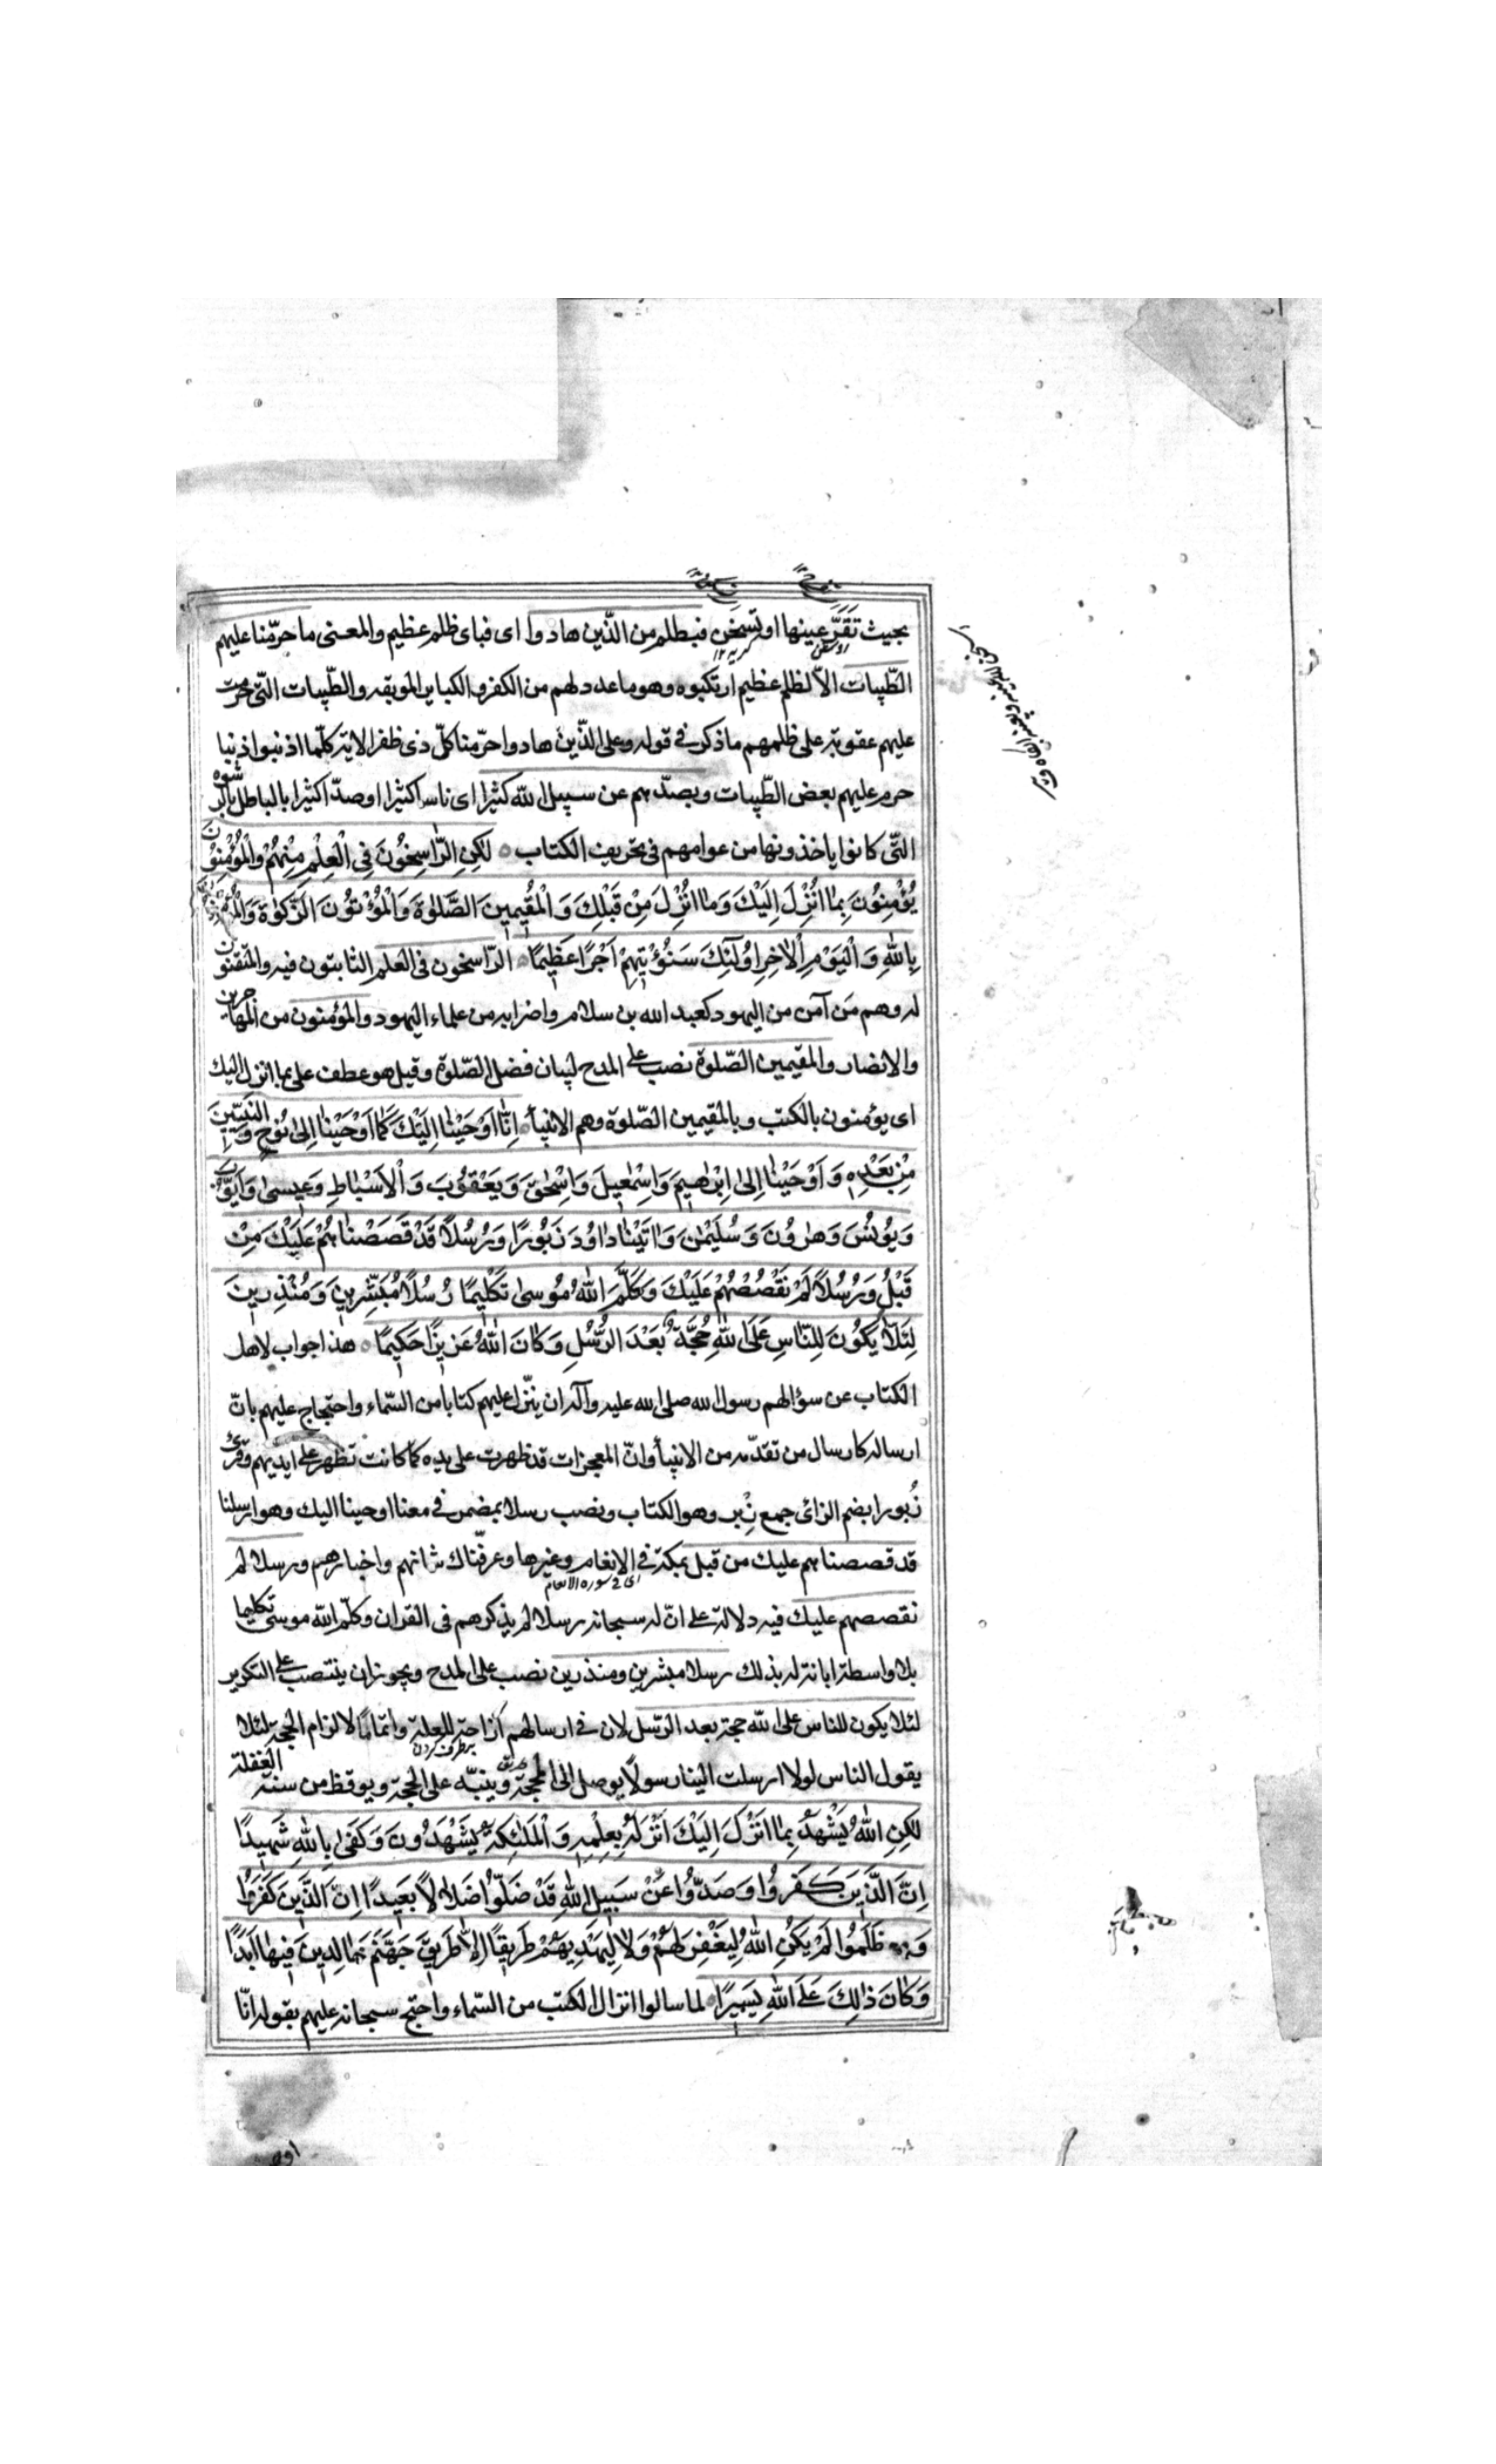 بحيث تَقَرّ عينها او تسخن فبظلم من الذّين هادوا اى فباى ظلم عظيم والمعنى ما حرّمنا عليهم
الطّيبات الاّ لظلم عظيم ارتكبوه وهو ما عدد لهم من الكفر والكباير الموبقه والطّيبات التّى حرمت
عليهم عقوبة على ظلمهم ما ذكر فى قوله وعلى الذّين هادوا حرّمنا كلّ ذى ظفر الاية كلّما اذنبوا ذنبا
حرم عليهم بعض الطّيبات وبصدّهم عن سبيل اللّه كثيرا اى ناسا كثيرا او صدّا كثيرا بالباطل بالرشوه
التّى كانوا ياخذونها من عوامهم فى تحريف الكتاب لكِنِ الرّاسِخُونَ فِى الْعِلْمِ مِنْهُمْ وَالْمُؤْمِنُونَ
يُؤْمِنُونَ بِمٰا اُنْزِلَ اِلَيْكَ وَمٰا اُنْزِلَ مِنْ قَبْلِكَ وَ الْمُقيمينَ الصَّلٰوةَ وَالْمُؤْتُونَ الزَّكٰوةَ وَالْمُؤْمِنُونَ
بِاللّٰهِ وَ الْيَوْمِ الْاٰخِرِ اُولٰئِكَ سَنُؤْتيهِمْ اَجْرًا عَظيمًا الرّاسخون فى العلم الثابتون فيه والمتقنون
له وهم مَن آمن من اليهود كعبد الله بن سلام واضرابه من علماء اليهود والمؤمنون من المهاجرين
والانصار والمقيمين الصّلوة نصب على المدح لبيان فضل الصّلوة وقيل هو عطف على بما انزل اليك
اى يؤمنون بالكتب وبالمقيمين الصّلوة وهم الانبياء اِنّٰا اَوْحَيْنٰا اِلَيْكَ كَمٰا اَوْحَيْنٰا اِلىٰ نُوحٍ وَ النَّبِيّينَ
مِنْ بَعْدِهِ وَ اَوْحَيْنٰا اِلىٰ اِبْرٰهيمَ وَاِسْمٰعيلَ وَاِسْحٰقَ وَ يَعْقُوبَ وَ الْاَسْبٰاطِ وَعيسىٰ وَاَيُّوبَ
وَيُونُسَ وَهٰرُونَ وَ سُلَيْمٰنَ وَاٰتَيْنٰا دٰاوُدَ زَبُورًا وَرُسُلًا قَدْ قَصَصْنٰاهُمْ عَلَيْكَ مِنْ
قَبْلُ وَ رُسُلًا لَمْ نَقْصُصْهُمْ عَلَيْكَ وَكَلَّمَ اللّٰهُ مُوسىٰ تَكْليمًا رُسُلًا مُبَشِّرينَ وَ مُنْذِرينَ
لِئَلّٰا يَكُونَ لِلنّٰاسِ عَلَى اللّٰهِ حُجَّةٌ بَعْدَ الرُّسُلِ وَكٰانَ اللّٰهُ عَزيزًا حَكيمًا هذا جواب لاهل
الكتاب عن سؤالهم رسول الله صلى الله عليه وآله ان ينزّل عليهم كتابا من السّماء واحتجاج عليهم بانّ
ارساله كارسال من تقدّمه من الانبياء وانّ المعجزات قد ظهرت على يده كما كانت تظهر على ايديهم وقرئ
زُبورا بضم الزائ جمع زِبر وهو الكتاب ونصب رسلا بمضمر فى معنا اوحينا اليك وهو ارسلنا
قد قصصناهم عليك من قبل بمكة فى الانعام وغيرها وعرفّناك شانهم واخبارهم ورسلا لم
اى فى سوره الانعام
نقصصهم عليك فيه دلالة على انّ له سبحانه رسلا لم يذكرهم فى القران وكلّم اللّه موسى تكليما
بلا واسطة ابانة له بذلك رسلا مبشرين ومنذرين نصب على المدح ويجوز ان ينتصب على التكرير
لئلا يكون للناس على اللّه حجة بعد الرّسل لان فى ارسالهم ازاحة للعلة واتماما لالزام الحجة لئلا
برطرف كردن
يقول الناس لولا ارسلت الينا رسولًا يوصل الى المحجة وينبّه على الحجة ويوقظ من سنة الغفلة
لكِنِ اللّٰهُ يَشْهَدُ بِمٰا اَنْزَلَ اِلَيْكَ اَنْزَلَهُ بِعِلْمِهِ وَ الْمَلٰئِكَةُ يَشْهَدُونَ وَ كَفىٰ بِاللّٰهِ شَهيدًا
اِنَّ الَّذينَ كَفَرُوا وَ صَدُّوا عَنْ سَبيلِ اللّٰهِ قَدْ ضَلُّوا ضَلٰالًا بَعيدًا اِنَّ الَّذينَ كَفَرُوا
وَ ظَلَمُوا لَمْ يَكُنِ اللّٰهُ لِيَغْفِرَ لَهُمْ وَلٰا لِيَهْدِيَهُمْ طَريقًا اِلّٰا طَريقَ جَهَنَّمَ خٰالِدينَ فيهٰا اَبَدًا
وَكٰانَ ذٰلِكَ عَلَى اللّٰهِ يَسيرًا لما سالوا انزال الكتب من السّماء واحتج سبحانه عليهم بقوله انّا